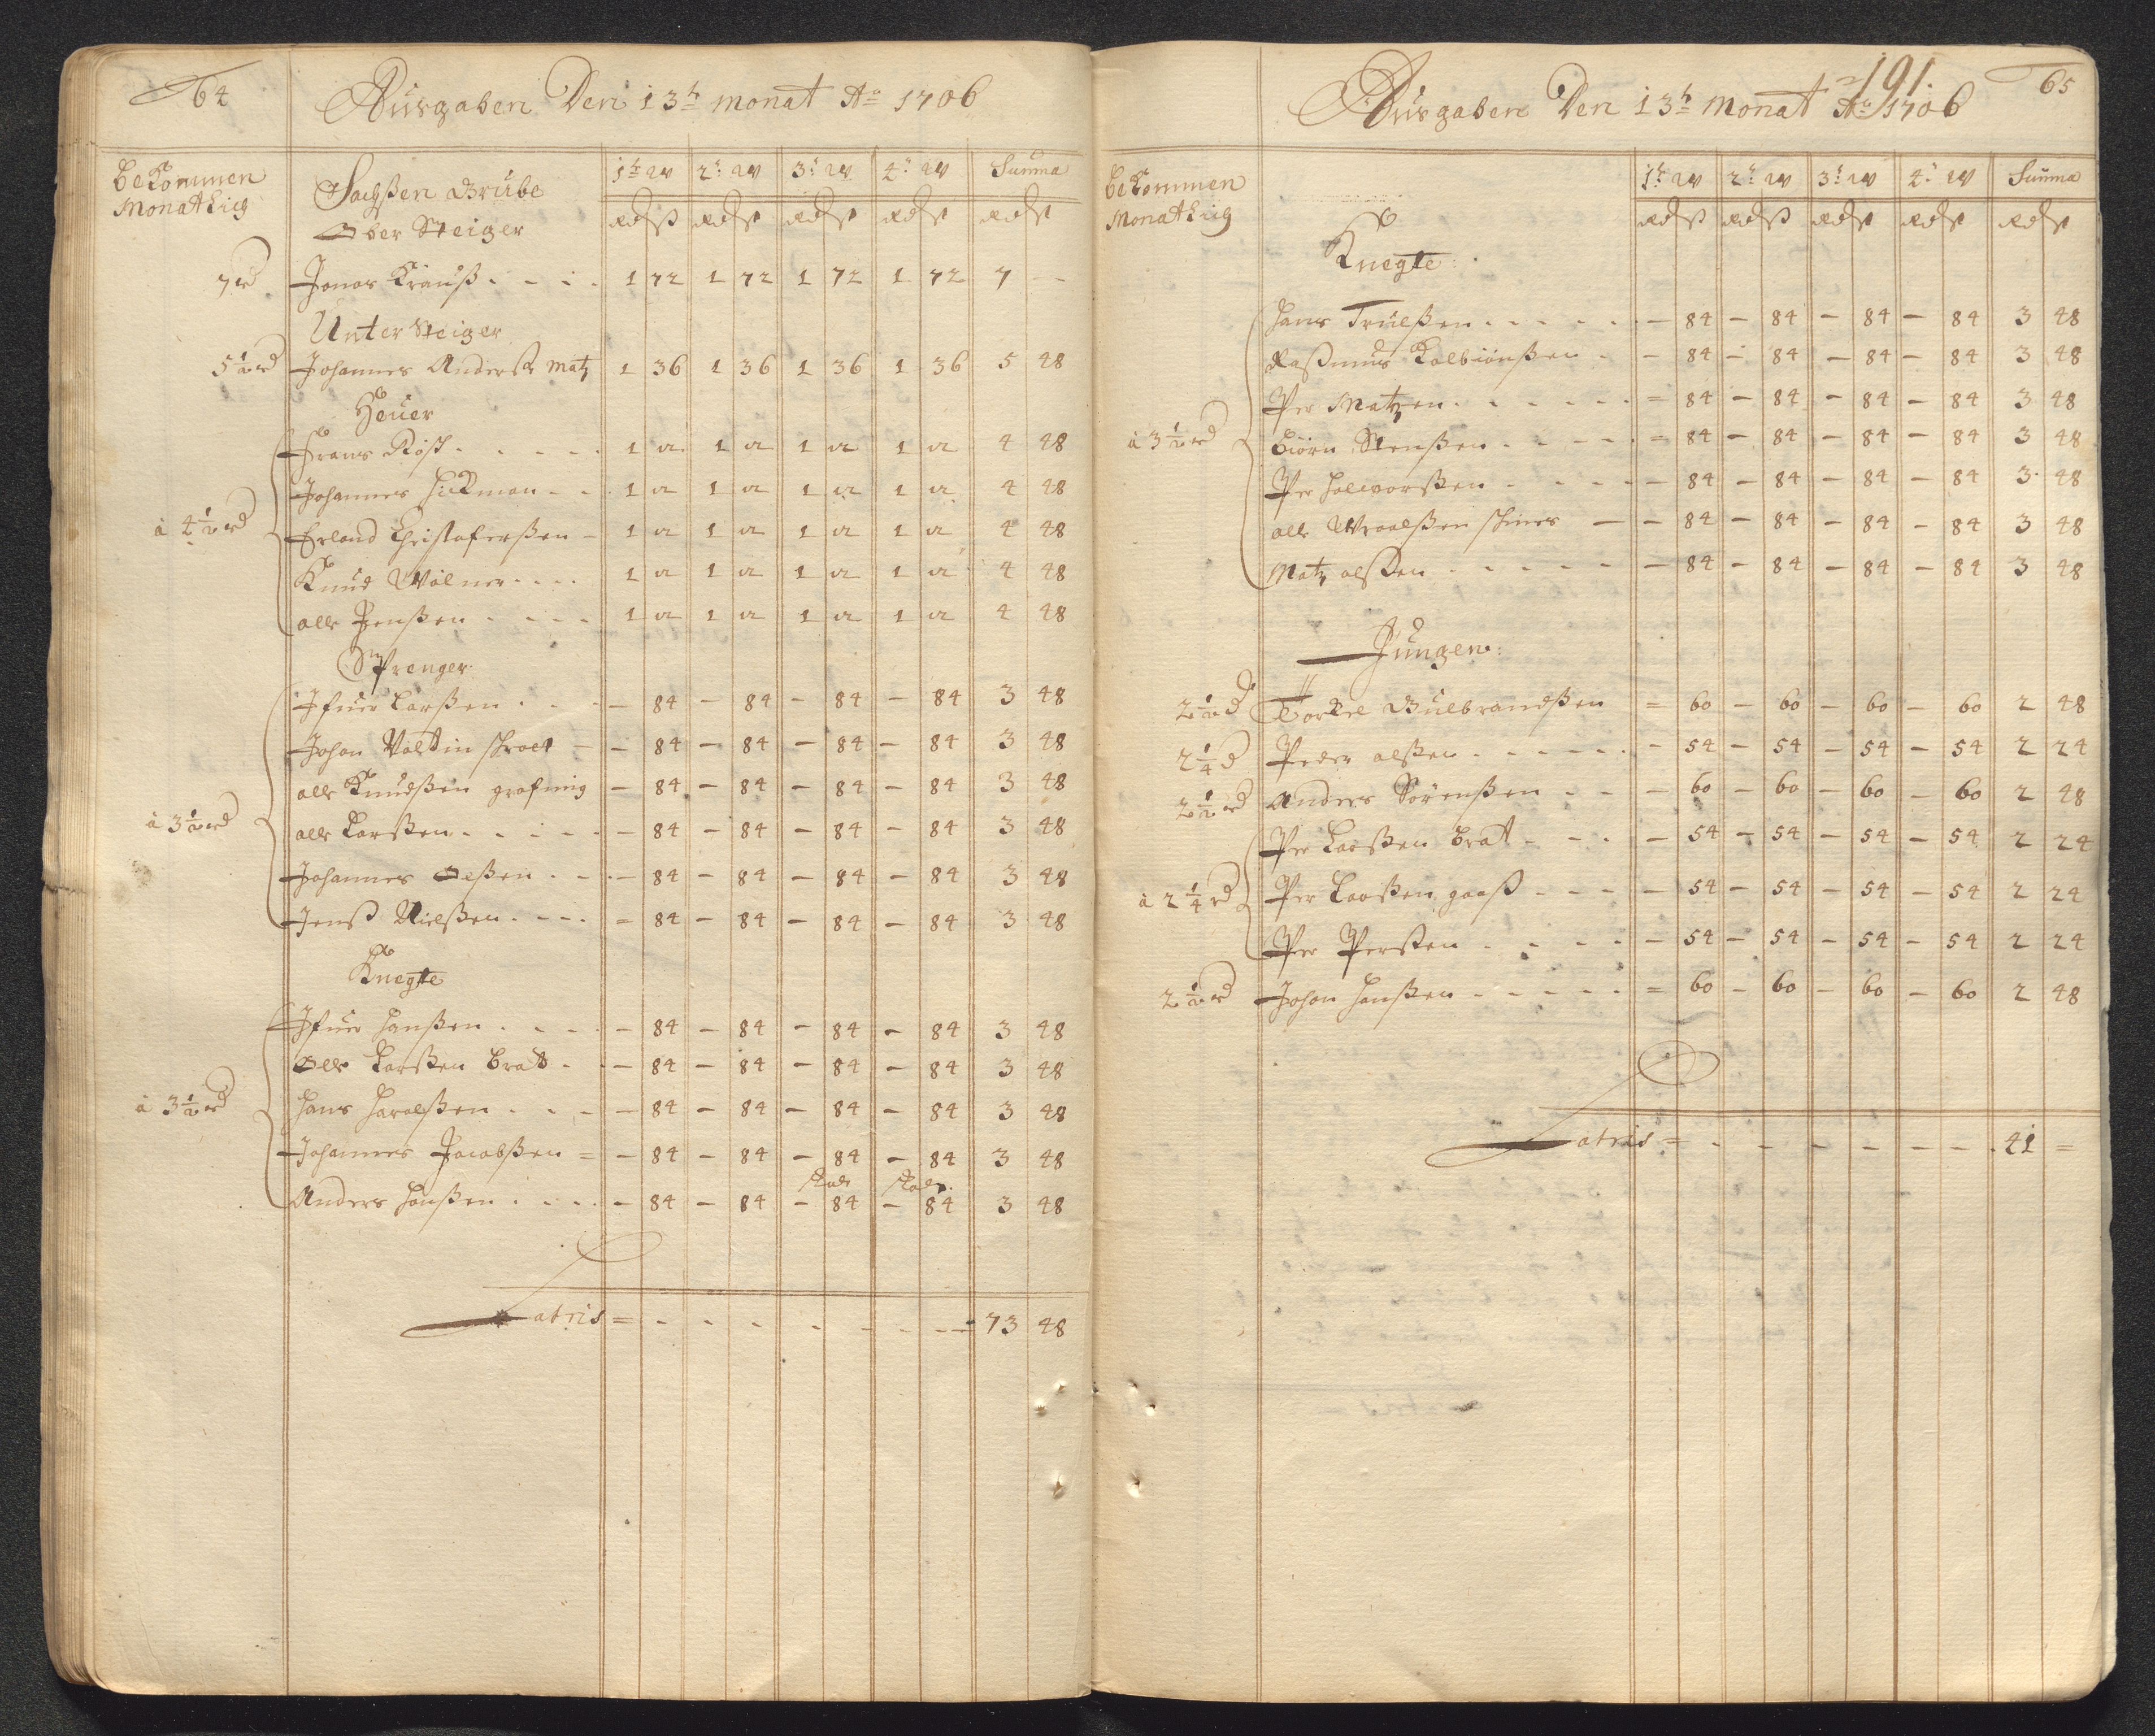 64
Ausgaben Den 13t monat Ao 1706
Bekommen Monatlich
Sachßen Grübe
1t W 2t W 3t W 4t W Summa
Ober Steiger
Rd ß Rd ß Rd ß Rd ß Rd ß
7 rd Jonas Krauß 1 72 1 72 1 72 1 72 7 -
Unter Steiger
5½ rd Johannes Anderß Matz 1 36 1 36 1 36 1 36 5 48
Heuer
Frans Röst 1 12 1 12 1 12 1 12 4 48
Johannes Hickman 1 12 1 12 1 12 1 12 4 48
à 4½ rd Erland Christoferßen 1 12 1 12 1 12 1 12 4 48
Knud Wölner 1 12 1 12 1 12 1 12 4 48
alle Jenßen 1 12 1 12 1 12 1 12 4 48
Sprenger
Ifuer Larßen - 84 - 84 - 84 - 84 3 48
Johan Valtin - 84 - 84 - 84 - 84 3 48
alle Knudßen - 84 - 84 - 84 - 84 3 48
à 3½ rd alle Larßen - 84 - 84 - 84 - 84 3 48
Johannes Olßen - 84 - 84 - 84 - 84 3 48
Jenß Nielßen = 84 - 84 - 84 - 84 3 48
Knegte
Ifuer Hanßen - 84 - 84 - 84 - 84 3 48
Olle Larßen Brat - 84 - 84 - 84 - 84 3 48
à 3½ rd Hans Haralßen - 84 - 84 - 84 - 84 3 48
Johannes Jacobßen = - 84 - 84 - 84 - 84 3 48
Anders Hanßen - 84 - 84 - 84 - 84 3 48
Latris = 73 48
191.
65
Ausgaben Den 13t Monat Ao 1706
Bekommen Monatlich
1t W 2t W 3t W 4t W Summa
Rd ß Rd ß Rd ß Rd ß Rd ß
Knegte
Hans Trulßen - 84 - 84 - 84 - 84 3 48
Raßmus Kolbiönßen - 84 - 84 - 84 - 84 3 48
Per Matzen = 84 - 84 - 84 - 84 3 48
à 3½ rd Biörn Stenßen = 84 - 84 - 84 - 84 3 48
Per Halworßen - 84 - 84 - 84 - 84 3 48
alle - 84 - 84 - 84 - 84 3 48
Matz olßen - 84 - 84 - 84 - 84 3 48
Jungen:
2½ d Torkel Gulbrandßen = 60 - 60 - 60 - 60 2 48
2¼ d Peder olßen - 54 - 54 - 54 - 54 2 24
2½ rd Anders Sörenßen - 60 - 60 - 60 - 60 2 48
Per Larßen Brat - 54 - 54 - 54 - 54 2 24
à 2¼ rd Per Larßen gaaß - 54 - 54 - 54 - 54 2 24
Per Perßen - 54 - 54 - 54 - 54 2 24
2½ rd Johan Hanßen = 60 - 60 - 60 - 60 2 48
Latris = 41 =